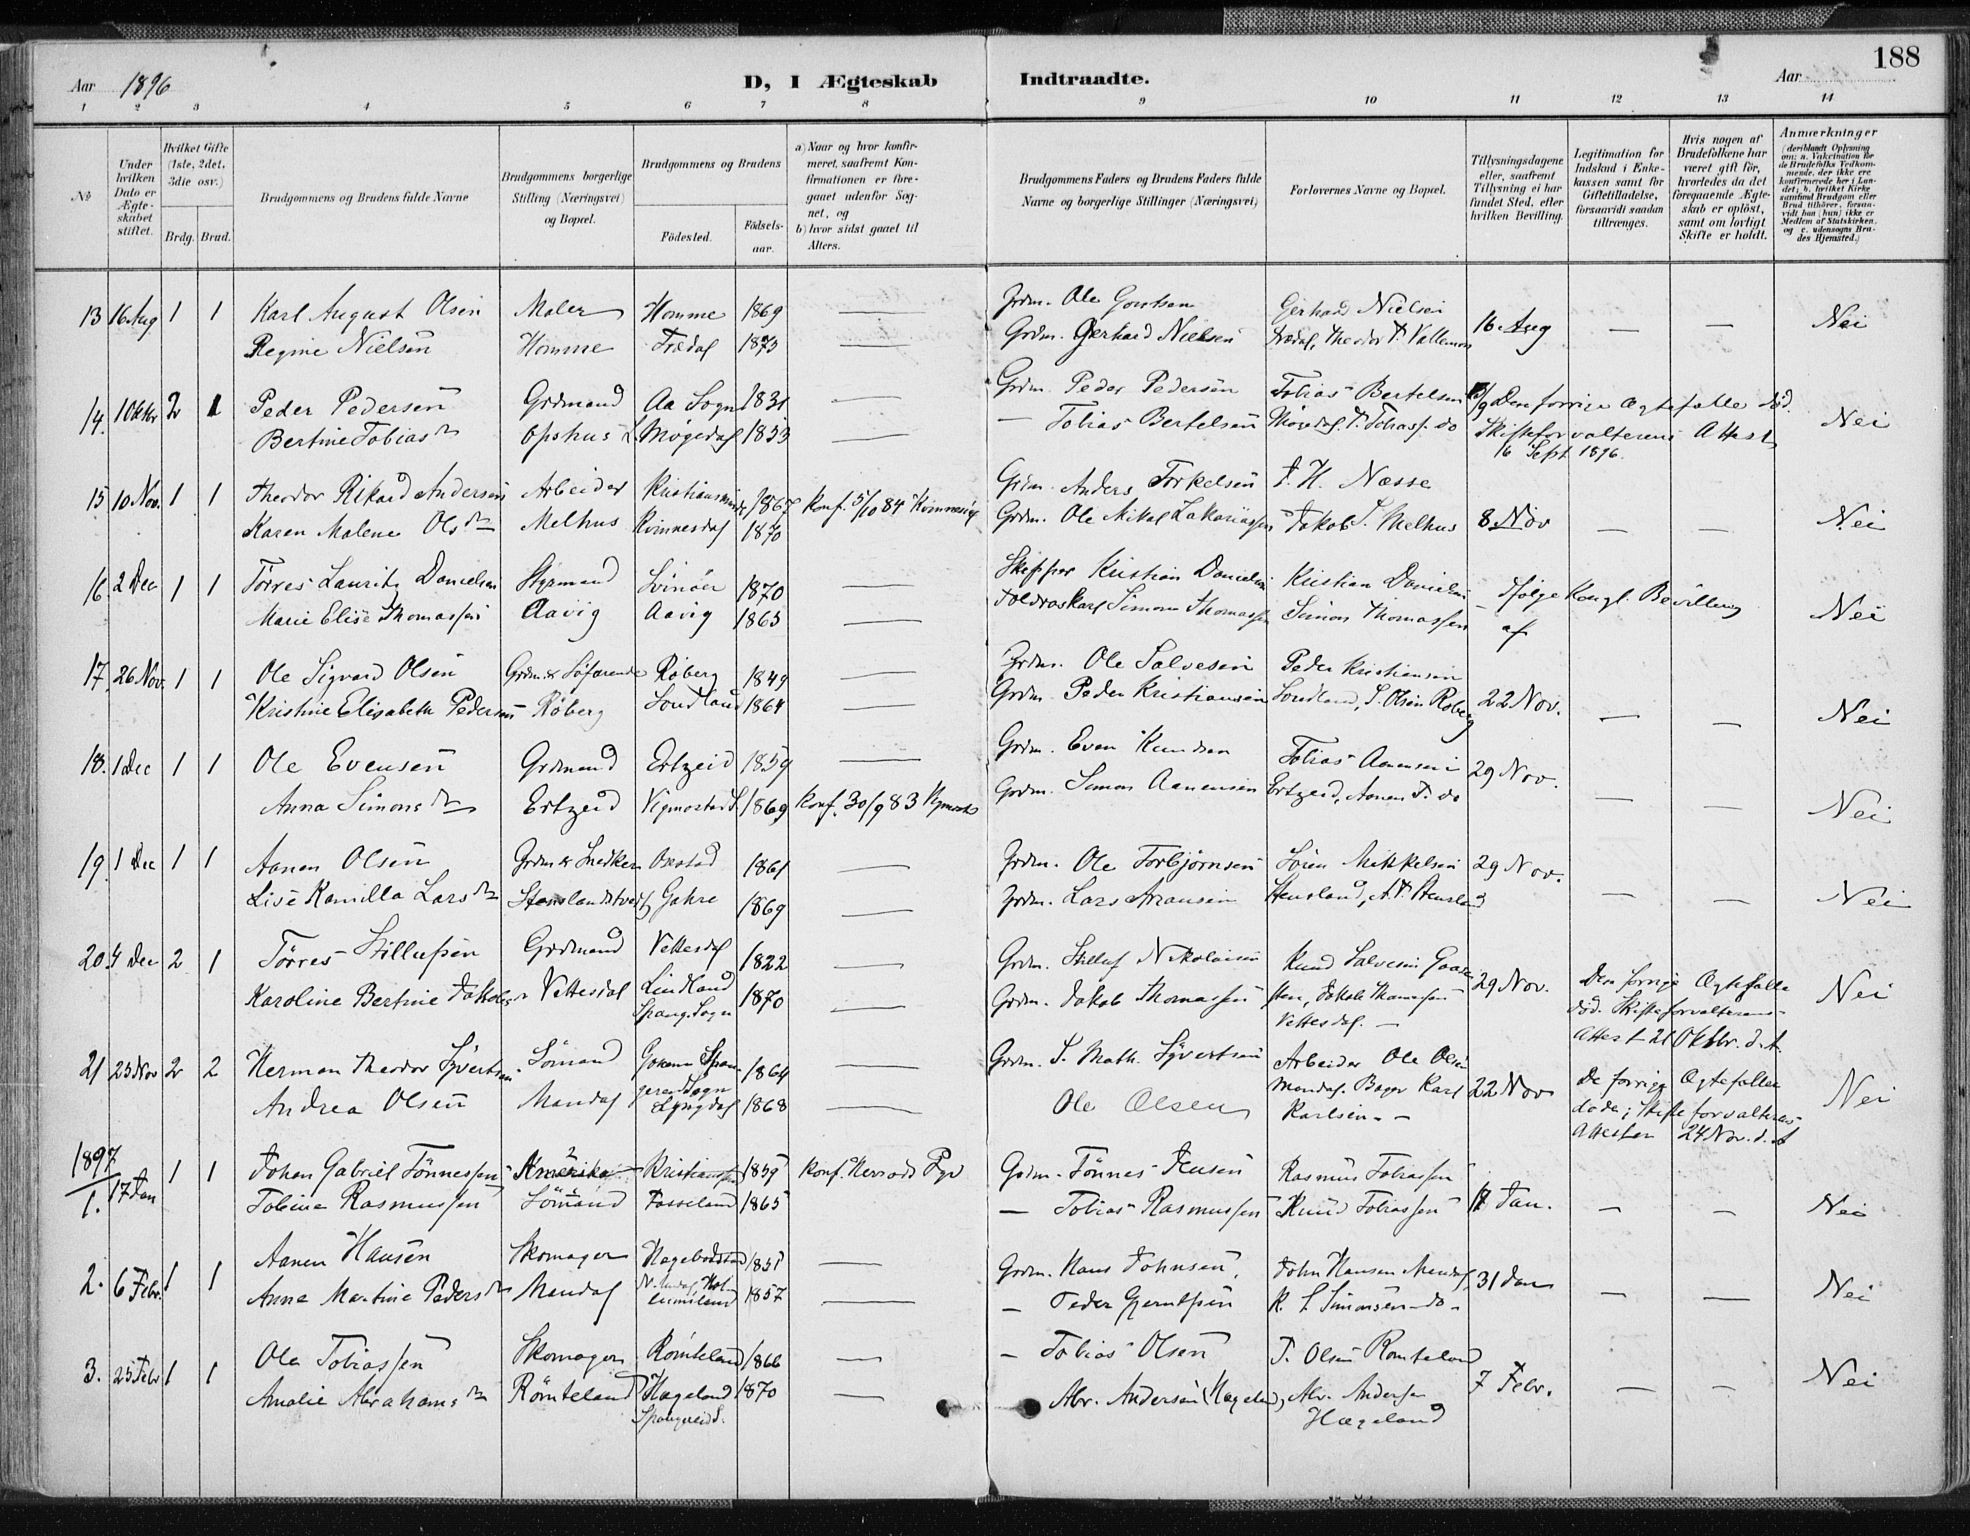 188
Aar 1896 D, I Ægteskab Indtraadte. Aar
1 2 3 4 5 6 7 8 9 10 11 12 13 14
№
Under hvilken Dato er Ægteskabet stiftet.
Hvilket Gifte (1ste, 2det, 3die osv.)
Brdg. Brud.
Brudgommens og Brudens fulde Navne
Brudgommens borgerlige Stilling (Næringsvei) og Bopæl.
Brudgommens og Brudens
Fødested. Fødselsaar.
a) Naar og hvor konfirmeret, saafremt Konfirmationen er foregaaet udenfor Sognet, og
b) hvor sidst gaaet til Alters.
Brudgommens Faders og Brudens Faders fulde Navne og borgerlige Stillinger (Næringsvei)
Forlovernes Navne og Bopæl.
Tillysningsdagene eller, saafremt Tillysning ei har fundet Sted, efter hvilken Bevilling.
Legitimation for Indskud i Enkekassen samt for Giftetilladelse, forsaavidt saadan tiltrænges.
Hvis nogen af Brudefolkene har været gift før, hvorledes da det foregaaende Ægteskab er opløst, samt om lovligt Skifte er holdt.
Anmærkninger (deriblandt Oplysning om: a. Vakcination for de Brudefolks Vedkommende, der ikke ere konfirmerede her i Landet; b. hvilket Kirkesamfund Brudgom eller Brud tilhører, forsaavidt han (hun) ikke er Medlem af Statskirken, og c. udensogns Brudes Hjemsted.)
13 16 Aug 1 1 Karl August Olsen Maler Homme 1869 — Grdm. Ole Gerhard Nielsen
Regine Nielsen Homme Trædal 1873 — Grdm. Gerhard Nielsen Trædal, Theodor T. 16. Aug — — Nei
14. 1 Oktbr 2 1 Peder Pedersen Grdmand Aa Sogn 1831 — Grdm. Peder Pedersen Tobias Bertelsen Den forrige Ægtefælle død.
Bertine Tobiasdtr Opshus Møgedal 1853 — — Tobias Bertelsen Møgedal, T. Tobiass. do Skifteforvalterens Attest Nei
16 Sept 1896.
15 10 Nov. 1 1 Theodor Rikard Andersen Arbeider 1867 Konf. 5/10 84 Grdm. Anders Torkelsen T. H. Næsse
Karen Malene Olsdtr Melhus Kvinnesdal 1870 Grdm. Ole Mikal Zakariassen Jakob S. Melhus 8 Nov — — Nei
16 2 Dec 1 1 Tørres Lauritz Danielsen Styrmand Svinøer 1870 — Skipper Kristian Danielsen Kristian Danielsen Ifølge Kongl. Bevilling
Marie Elise Thomassen Aavig Aavig 1865 — Simon Thomassen Simon Thomassen af Nei
17. 26 Nov. 1 1 Ole Sigvard Olsen Grdm. & Søfarende Røberg 1849 — Grdm. Ole Salvesen Peder Kristiansen
Kristine Elisabeth Pedersen Røberg Sondland 1864 — Grdm. Peder Kristiansen Sondland, S. Olsen Røberg 22 Nov. — — Nei
18. 1 Dec 1 1 Ole Evensen Grdmand Ertzeid 1859 — Grdm. Even Knudsen Tobias Aanensen 29 Nov.
Anna Simonsdtr Ertzeid Vigmostad S. 1869 Konf. 30/9 83 Grdm. Simon Aanensen Ertzeid, Aanen T. do — — Nei
19. 1 Dec 1 1 Aanen Olsen Grdm & Snedker 1861 — Grdm. Ole Torbjørnsen Søren Mikkelsen 29 Nov.
Lise Kamilla Larsdtr Gahre 1869 — Grdm. Lars — — Nei
20. 4 Dec 2 1 Tørres Stillufsen Grdmand Vettesdal 1822 — Grdm. Stilluf Nikolaisen Knud Salvesen
Karoline Bertine Jakobs Vettesdal Lindland 1870 — Grdm. Jakob Thomassen Jakob Thomassen 29 Nov. Den forrige Ægtefælle Nei
Spang. Sogn Vettesdal. — død. Skifteforvalterens
Attest 21 Oktbr. d.A.
21 25 Nov 2 2 Herman Theodor Syvertsen Sømand 1864 — Grdm. S. Math. Syvertsen Arbeider Ole Olsen
Andrea Olsen Mandal Lyngdal 1868 — Ole Olsen Mandal. Bager Karl 22 Nov De forrige Ægtefæller Nei
Karlsen. — døde; Skifteforvalterens
Attester 24 Nov. d.A
1897
1. 17 Jan 1 1 Johan Gabriel Tønnessen Amerika Kristianssand 1859 Konf. Grdm. Tønnes Jensen Rasmus Tobiassen
Tobine Rasmussen Sømand Fosseland 1865 — Tobias Rasmussen Knud Tobiassen 17 Jan. — — Nei
2. 6 Febr. 1 1 Aanen Hansen Skomager 1851 — Grdm. Hans Johnsen, John Hansen Mandal, 31 Jan
Anne Martine Pedersdtr Mandal 1857 — — Peder R. S. Simonsen — do — — — Nei
3. 25 Febr 1 1 Ole Tobiassen Skomager Rømteland 1866 — — Tobias Olsen T. Olsen Rømteland
Amalie Abrahamsdtr Rømteland Hægeland 1870 — Abr. Andersen Hægeland, Abr. Andersen 7 Febr. — — Nei
Hægeland